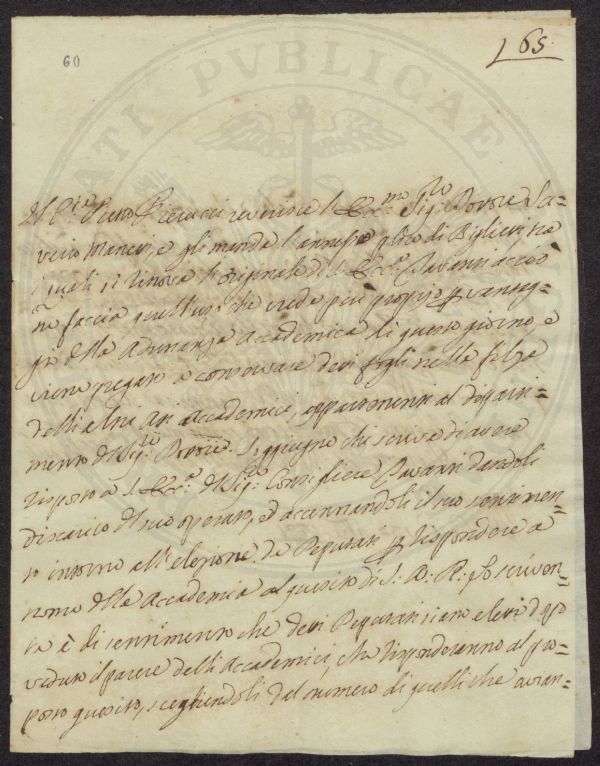 60
65
ATI PVBLICAE
Il Pietro reverisce l'Ecc:mo Sig:re Dottore Sa=
verio Manetti, e gli manda l'annesso plico di Biglietti, tra
i quali si ritrova l'originale di S. Ecc:a Tavanti acciò
ne faccia quell'uso che crede più proprio p vantag=
gio della Adunanza Accademica di questo giorno, e
viene pregato a conservare detti fogli nelle filze
delli altri atti Accademici, appartenenti al diparti=
mento del Sig:re Dottore. Soggiugne che scrive di avere
risposto a S. Ecc:a il Sig:re Consigliere Tavanti dandoli
discarico del suo operato, ed accennandoli il suo sentimen=
to intorno all'elezione de Deputati p rispondere a
nome della Accademia al quesito di S: A: R: lo scriven=
te è di sentimento che detti Deputati siano eletti dopo
veduto il parere delli Accademici, che risponderanno al pro=
posto quesito, scegliendoli dal numero di quelli che avran=